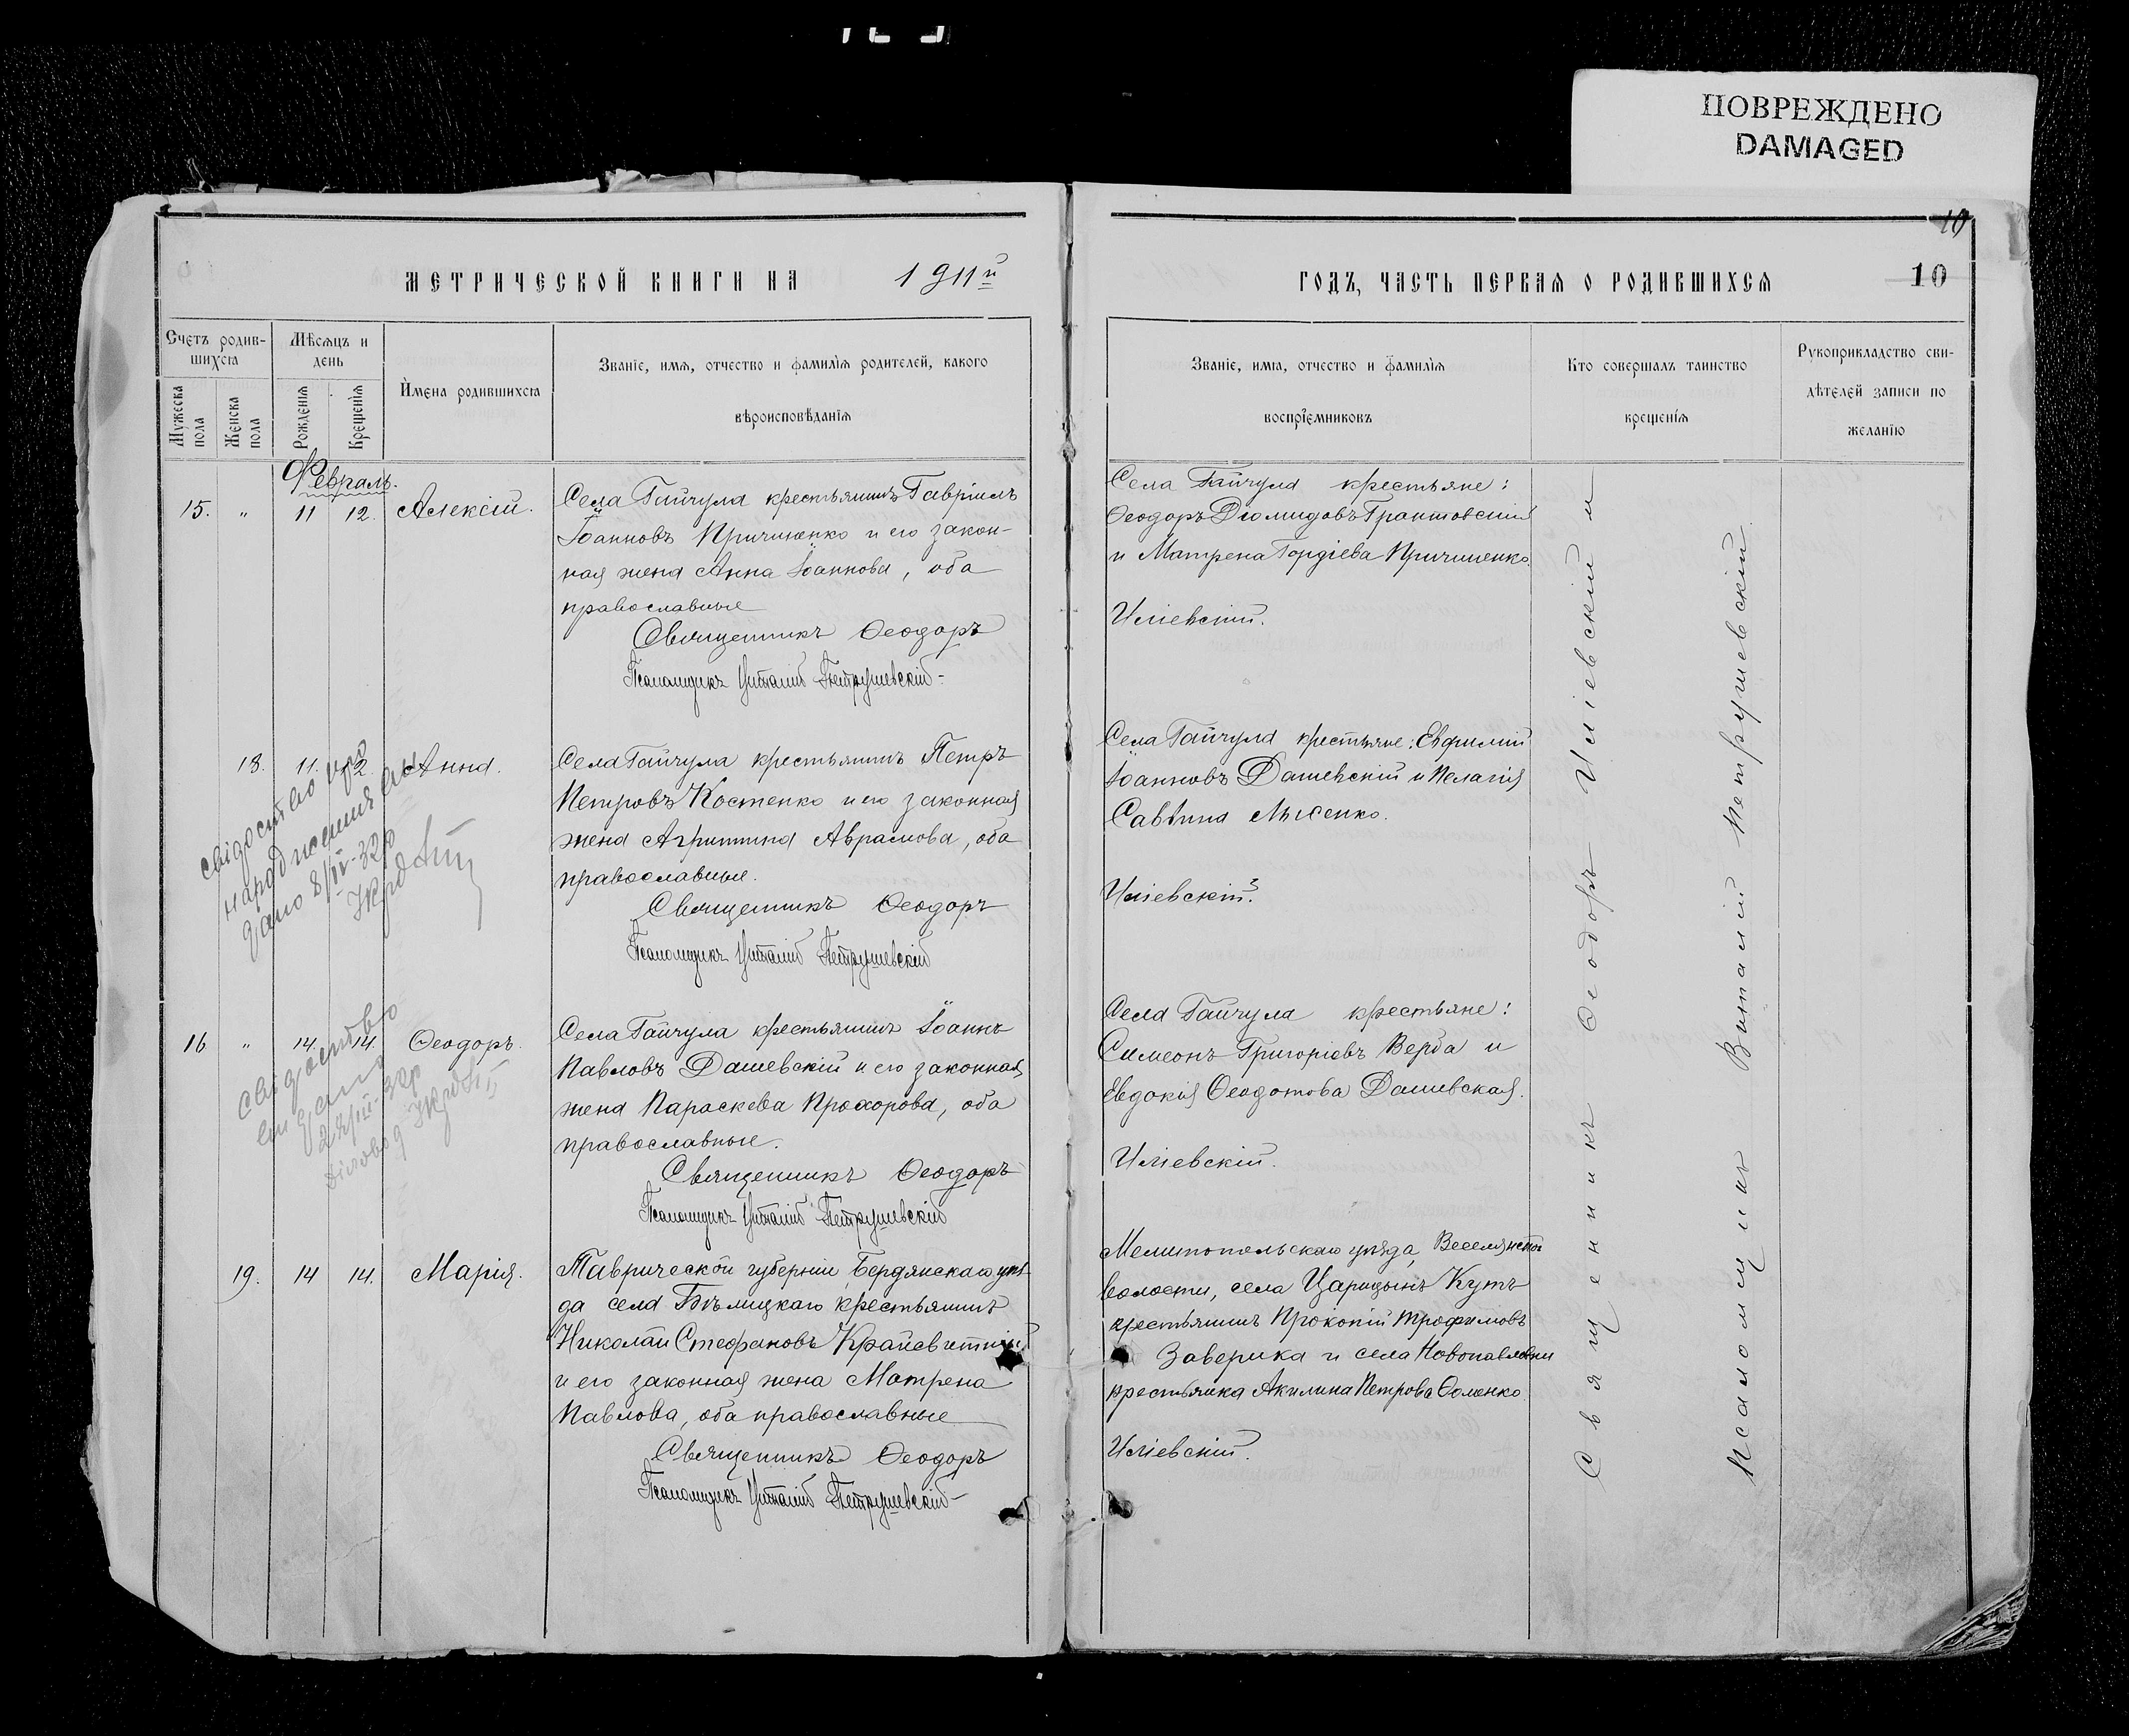 ПОВРЕЖДЕНО
DAMAGED
10
МЕТРИЧЕСКОЙ КНИГИ НА 1911й
ГОДЪ, ЧАСТЬ ПЕРВАЯ О РОДИВШИХСЯ
10
Счетъ родив-
шихся
Мужеска пола
Женска пола
Мѣсяцъ и
день
Рожденія
Крещенія
Имена родившихся
Званіе, имя, отчество и фамилія родителей, какого
вѣроисповѣданія
Званіе, имя, отчество и фамилія
воспріемниковъ
Кто совершалъ таинство
крещенія
Рукоприкладство сви-
дѣтелей записи по
желанію
Февраль.
15. " 11 12. Алексій.
Села Гайчула крестьянинъ Гавріилъ
Іоанновъ Причиненко и его закон-
ная жена Анна Іоаннова, оба
православные
Священникъ Ѳеодоръ
Псаломщикъ Виталій Петрушевскій
Села Гайчула крестьяне:
Ѳеодоръ Діомидовъ Грантовскій
и Матрена Гордіева Причиненко.
Иліевскій.
18. 11. 12. Анна.
Села Гайчула крестьянинъ Петръ
Петровъ Костенко и его законная
жена Агриппина Аврамова, оба
православные.
Священникъ Ѳеодоръ
Псаломщикъ Виталій Петрушевскій
Села Гайчула крестьяне: Евфимій
Іоанновъ Дашевскій и Пелагія
Саввина Лысенко.
Иліевскій.
свідоцтво про
народження
дано 8/IV-32р
16 " 14. 14. Ѳеодоръ.
Села Гайчула крестьянинъ Іоаннъ
Павловъ Дашевскій и его законная
жена Параскева Прохорова, оба
православные.
Священникъ Ѳеодоръ
Псаломщикъ Виталій Петрушевскій
Села Гайчула крестьяне:
Симеонъ Григоріевъ Верба и
Евдокія Ѳеодотова Дашевская.
Иліевскій.
свідоцтво
Діловод
19. 14 14. Марія.
Таврической губерніи, Бердянскаго уѣз-
да села Бѣлицкаго крестьянинъ
Николай Стефановъ
и его законная жена Матрена
Павлова, оба православные
Священникъ Ѳеодоръ
Псаломщикъ Виталій Петрушевскій
Мелитопольскаго уѣзда, Веселянской
волости, села Царицынъ Кутъ
крестьянинъ Прокопій Трофимовъ
Заверика и села Новопавловки
крестьянка Акилина Петрова Ѳоменко
Иліевскій.
Священникъ Ѳеодоръ Иліевскій и
Псаломщикъ Виталій Петрушевскій